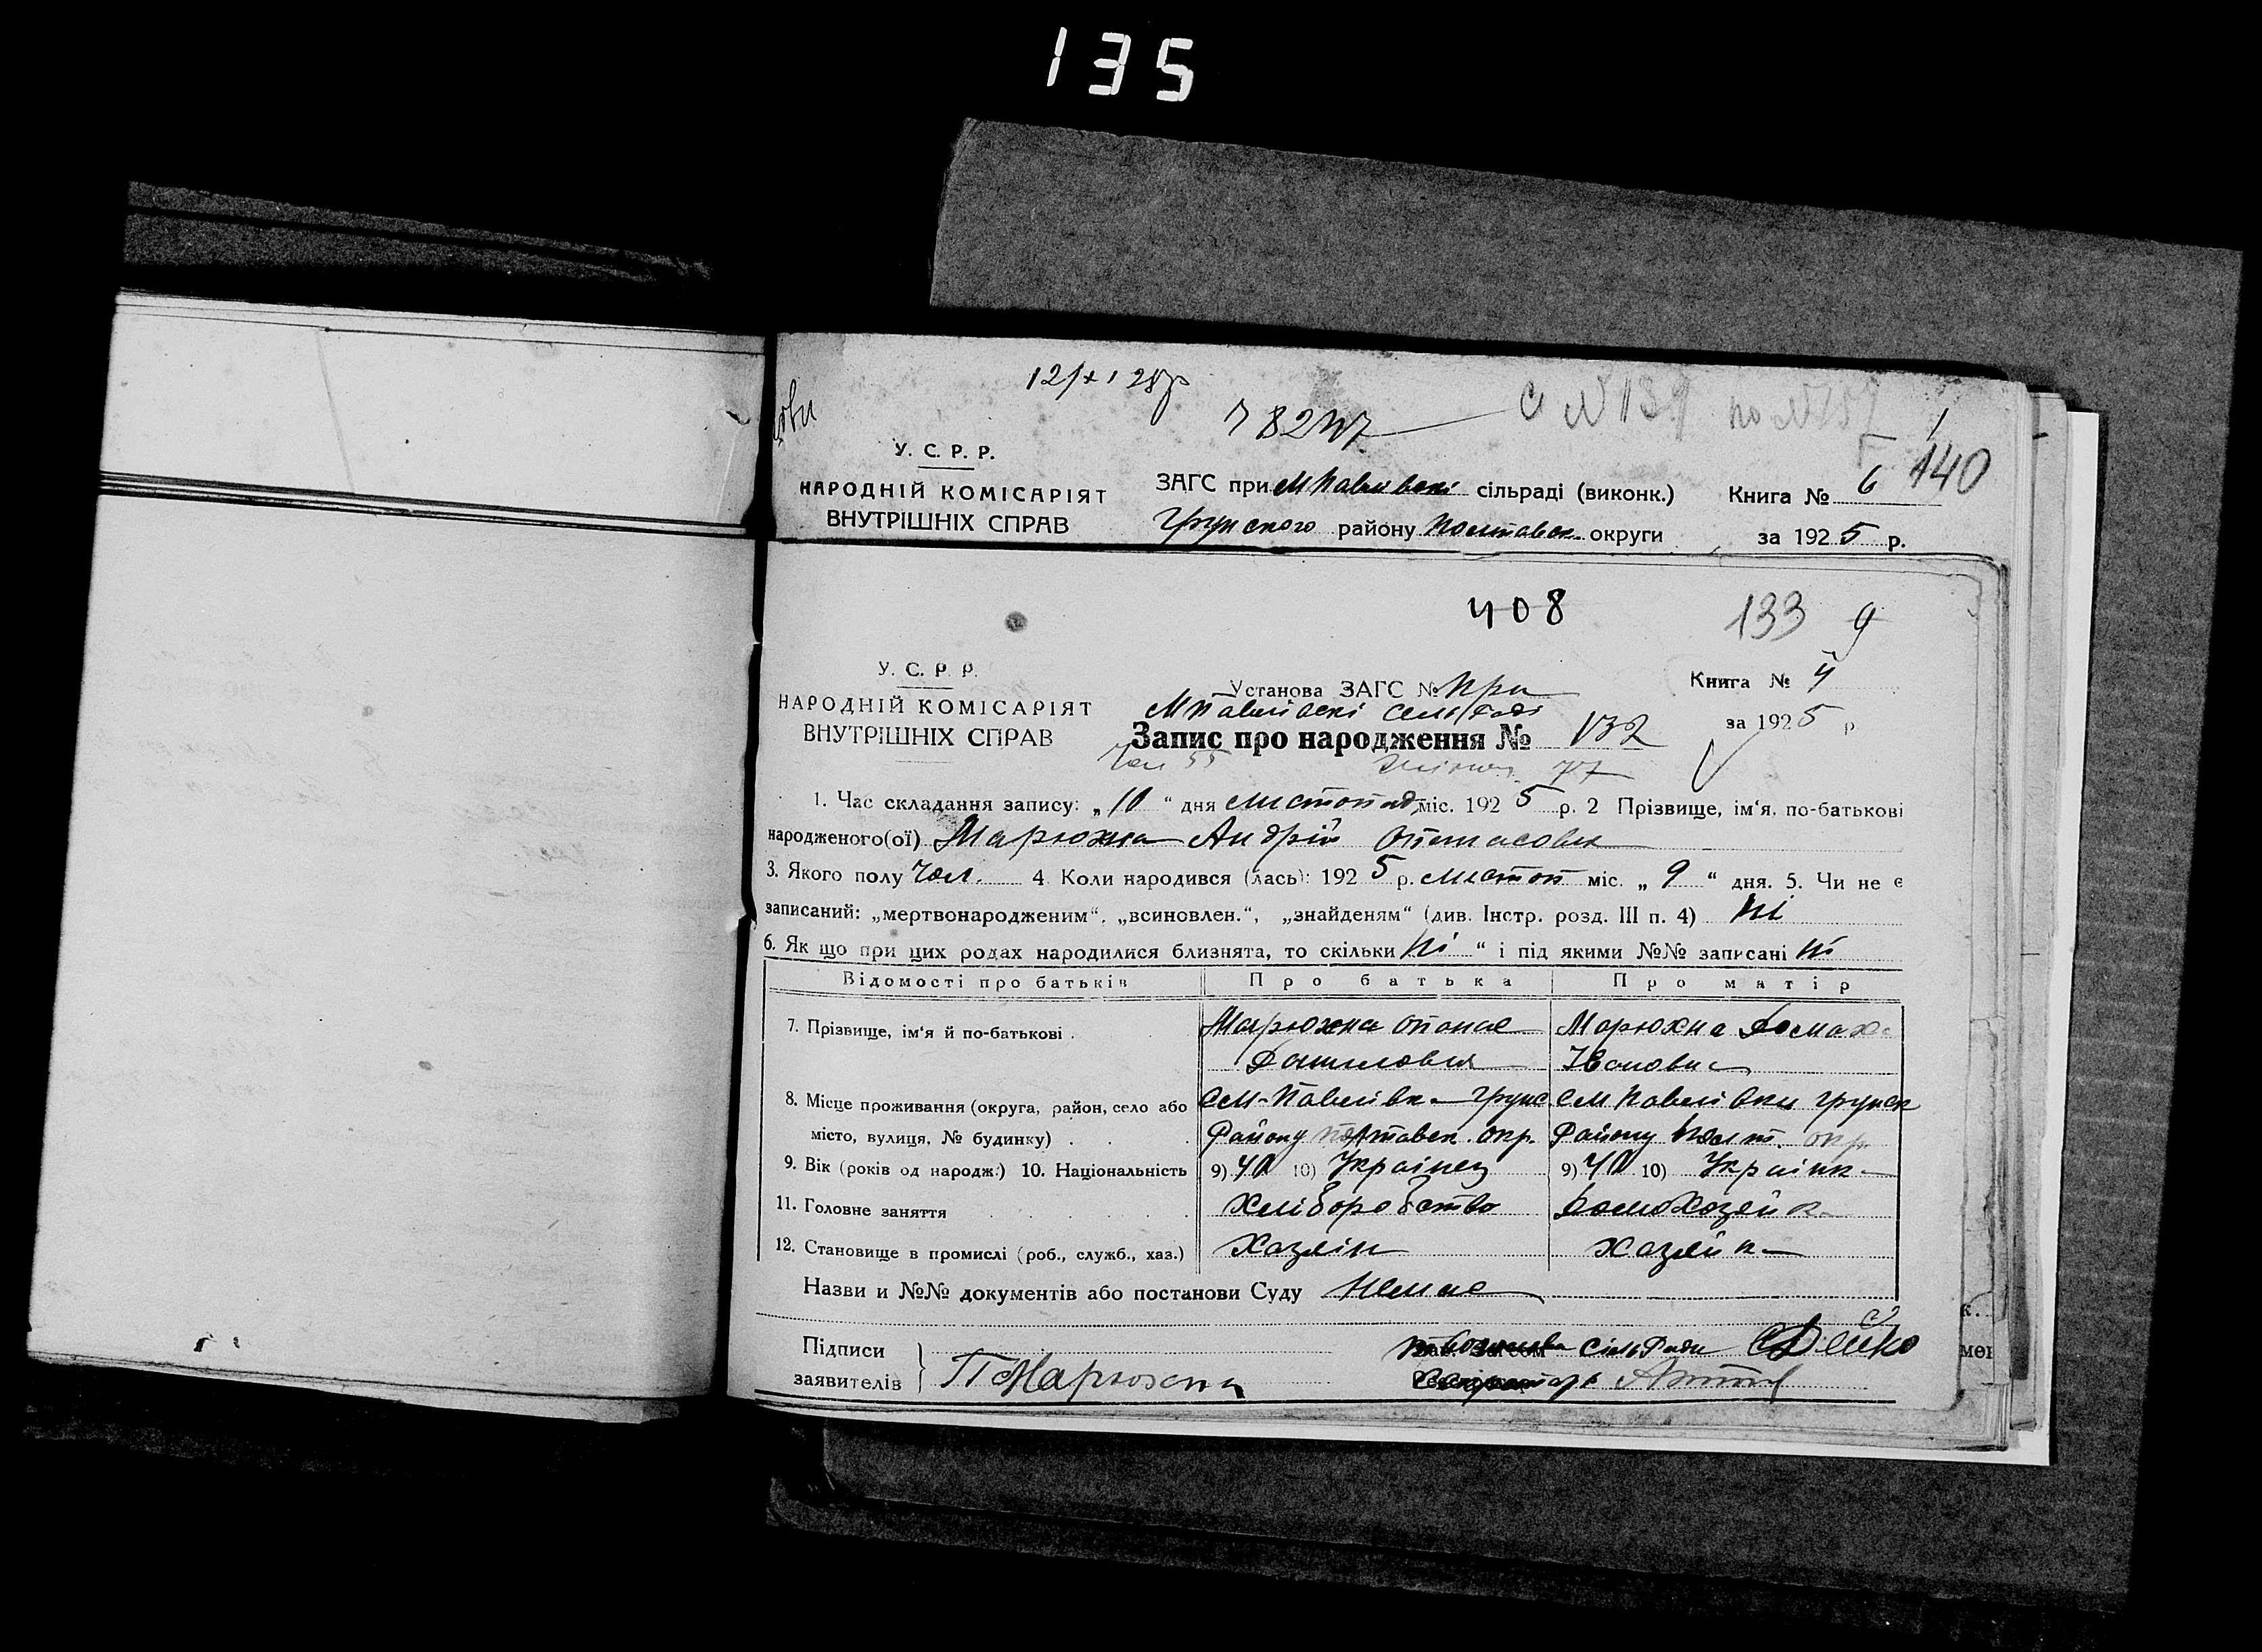 135
У. С. Р. Р.
НАРОДНІЙ КОМІСАРІЯТ
ВНУТРІШНІХ СПРАВ
ЗАГС при МПавлівскі сільраді (виконк.)
Грунского району Полтавск округи
Книга № 6
140
за 1925 р.
408
133 9
У. С. Р. Р.
НАРОДНІЙ КОМІСАРІЯТ
ВНУТРІШНІХ СПРАВ
Установа ЗАГС № При
МПавлівскі сельради
Запис про народження № 132
Книга № 4
за 1925 р
Чол 55 77
1. Час складання запису: „10“ дня листопад міс. 1925 р. 2 Прізвище, ім‘я, по-батькові
народженого(ої) Марюхна Андрій
3. Якого полу Чол. 4 Коли народився (лась): 1925 р. листоп міс. „9“ дня. 5. Чи не є
записаний: „мертвонародженим“, „всиновлен.“, „знайденям“ (див. Інстр. розд. III п. 4) Ні
6. Як що при цих родах народилися близнята, то скільки Ні “ і під якими №№ записані Ні
Відомості про батьків Про батька Про матір
7. Прізвище, ім‘я й по-батькові . Марюхна Опанас Марюхна Домах
Данилович Івановна
8. Місце проживання (округа, район, село або См-Павлівка Грунс. См Павлівки грунск
місто, вулиця, № будинку) . . . Району Полтавск. окр. Району Полт. окр
9. Вік (років од народж.) 10. Національність 9) 40 10) Українец 9) 40 10) Українк
11. Головне заняття Хліборобство Домохозяйк
12. Становище в промислі (роб., служб., хаз.) Хазяін хазяйк
Назви и №№ документів або постанови Суду Немае
Підписи
заявителів } П Марюхна
СільРади Дейко
Секретарь